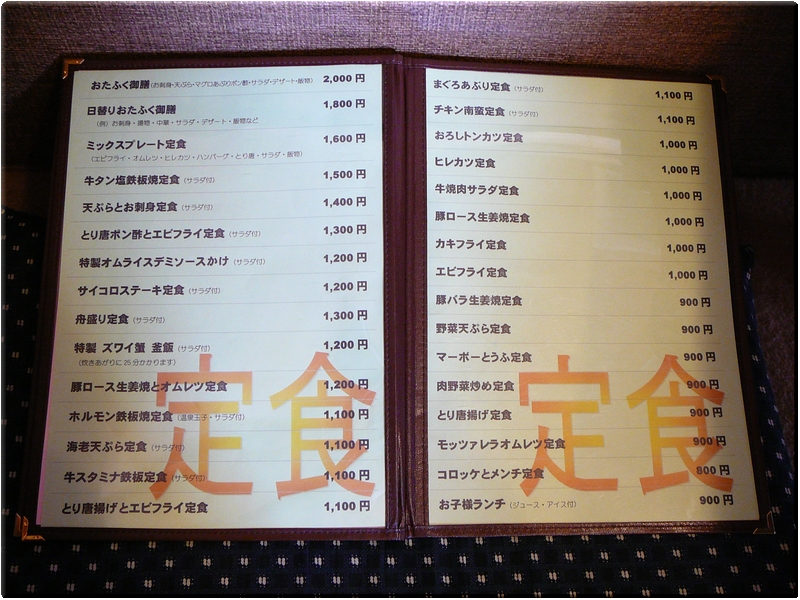 おたふく御膳(お刺身・天ぷら・マグロあぶりポン酢・サラダ・デザート・飯物) 2,000円
日替りおたふく御膳 1,800円
(例)お刺身・揚物・中華・サラダ・デザート・飯物など
ミックスプレート定食 1,600円
(エビフライ・オムレツ・ヒレカツ・ハンバーグ・とり唐・サラダ・飯物)
牛タン塩鉄板焼定食(サラダ付) 1,500円
天ぷらとお刺身定食(サラダ付) 1,400円
とり唐ポン酢とエビフライ定食(サラダ付) 1,300円
特製オムライスデミソースかけ(サラダ付) 1,200円
サイコロステーキ定食(サラダ付) 1,200円
舟盛り定食(サラダ付) 1,300円
特製 ズワイ蟹 釜飯(サラダ付) 1,200円
(炊きあがりに25分かかります)
豚ロース生姜焼とオムレツ定食 1,200円
ホルモン鉄板焼定食(温泉玉子・サラダ付) 1,100円
海老天ぷら定食(サラダ付) 1,100円
牛スタミナ鉄板定食(サラダ付) 1,100円
とり唐揚げとエビフライ定食 1,100円
定食
まぐろあぶり定食(サラダ付) 1,100円
チキン南蛮定食(サラダ付) 1,100円
おろしトンカツ定食 1,000円
ヒレカツ定食 1,000円
牛焼肉サラダ定食 1,000円
豚ロース生姜焼定食 1,000円
カキフライ定食 1,000円
エビフライ定食 1,000円
豚バラ生姜焼定食 900円
野菜天ぷら定食 900円
マーボーとうふ定食 900円
肉野菜炒め定食 900円
とり唐揚げ定食 900円
モッツァレラオムレツ定食 900円
コロッケとメンチ定食 800円
お子様ランチ(ジュース・アイス付) 900円
定食